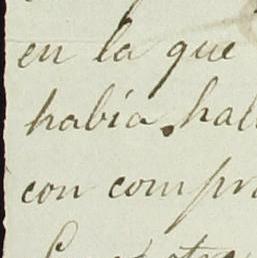 en la que
había hal
con compr